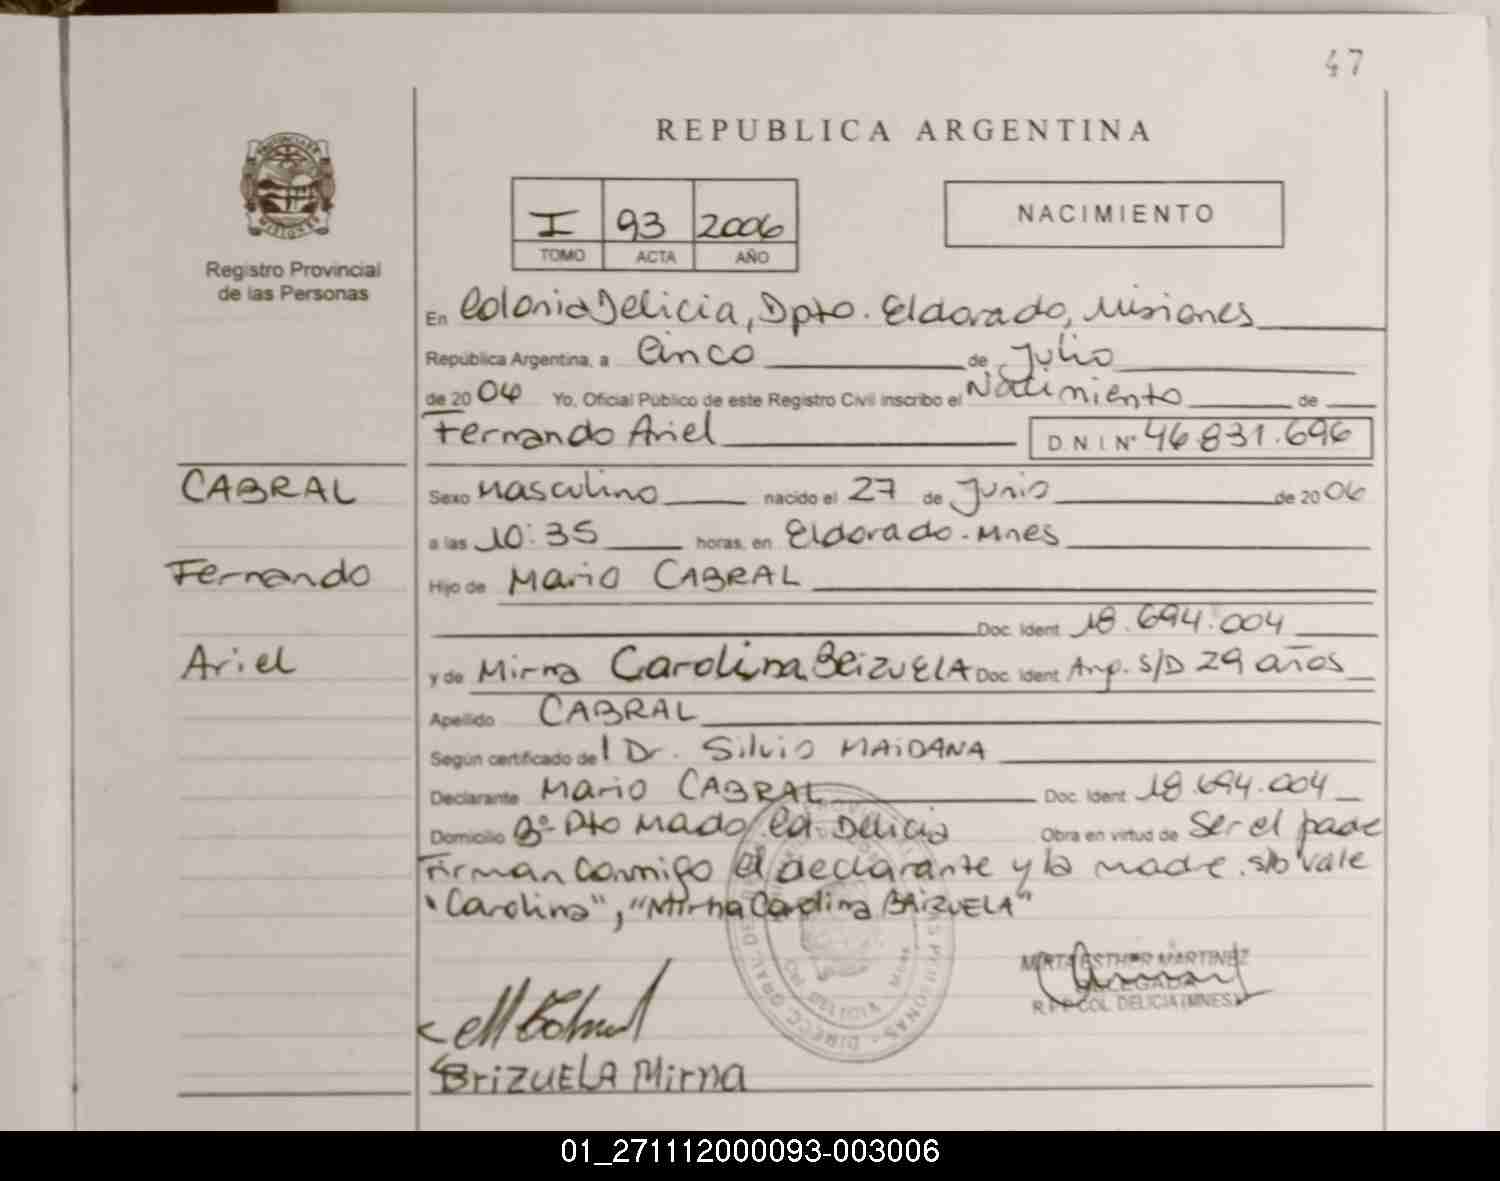 47
REPUBLICA ARGENTINA
I 93 2006
TOMO ACTA AÑO
NACIMIENTO
Registro Provincial
de las Personas
En Colonia Delicia, Dpto. Eldorado, Misiones
República Argentina, a Cinco de Julio
de 2006 Yo, Oficial Público de este Registro Civil inscribo el Nacimiento de
Fernando Ariel D.N.I.Nº 46.831.696
CABRAL
Fernando
Ariel
Sexo Masculino nacido el 27 de Junio de 2006
a las 10:35 horas, en Eldorado-Mnes
Hijo de Mario CABRAL
Doc. Ident 18.694.004
y de Mirna Carolina BRIZUELA Doc. Ident Arg. S/D 29 años
Apellido CABRAL
Según certificado de l Dr. Silvio MAIDANA
Declarante Mario CABRAL Doc. Ident 18.694.004
Domicilio Bº Pto Mado Col Delicia Obra en virtud de Ser el padre
Firman Conmigo el declarante y la madre. s/b vale
"Carolina", "Mirna Carolina BRIZUELA"
MIRTA ESTHER MARTINEZ
DELEGADA
R.P.P COL. DELICIA (MNES)
BRIZUELA Mirna
01_271112000093-003006